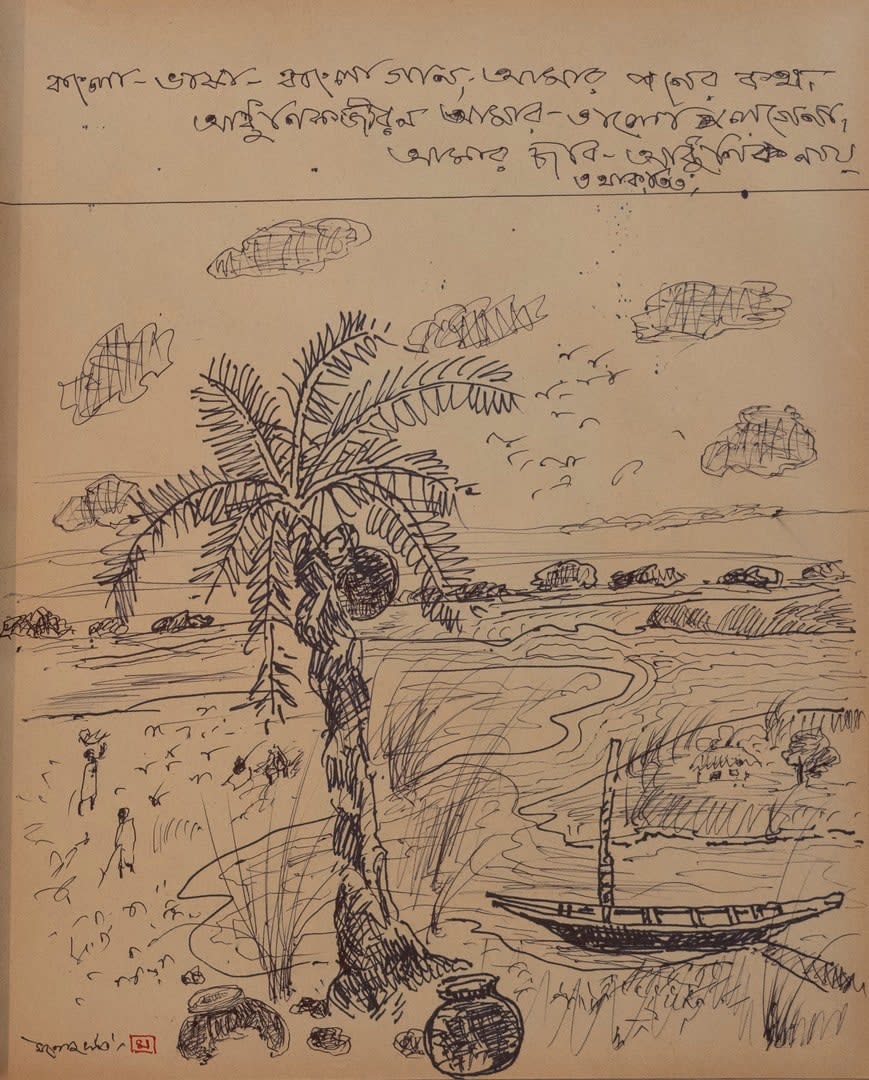 বাংলা - ভাষা - বাংলা গান, আমার মনের কথা,
আধুনিক জীবন আমার - ভালো লাগেনা,
আমার ছবি - আধুনিক নয়
তথাকথিত,
ম